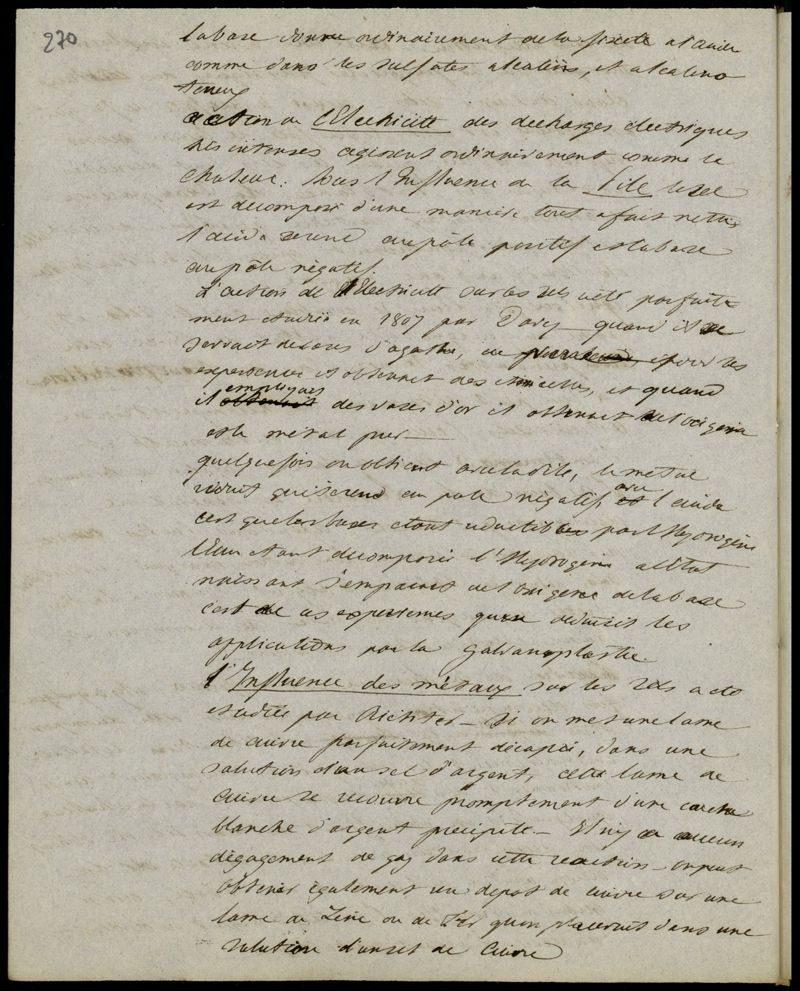 270
la base donne ordinairement de la fixité a l'acide
comme dans les sulfates alcalins, et alcalino
terreux
action de l'Electricité des decharges électriques
très intenses agissent ordinairement comme la
chaleur. Sous l'Influence de la Pile le sel
est decomposé d'une manière tout a fait nette
l'acide se rend au pôle positif et la base
au pôle négatif.
L'action de l'Electricité sur les sels a été parfaite
ment etudiée en 1807 par Davy quand il se
servait de vases d'agathe, ou pour les
experiences il obtenait des etincelles, et quand
il employait des vases d'or il obtenait de l'oxigène
et le métal pur
quelquefois on obtient avec la pile, le métal
réduit qui se rend au pole négatif avec l'acide
c'est que les bases etant réductibles par l'Hydrogène
l'Eau etant decomposée l'Hydrogène a l'état
naissant s'empare de l'oxigène de la base
c'est de ces experiences qu'on déduisit les
applications par la galvanoplastie
l'Influence des métaux sur les sels a été
etudiée par Richter – Si on met une lame
de cuivre parfaitement décapée, dans une
solution d'un sel d'argent, cette lame de
cuivre se recouvre promptement d'une couche
blanche d'argent précipité – Il n'y a aucun
dégagement de gaz dans cette reaction – on peut
obtenir également un depot de cuivre sur une
lame de Zinc ou de Fer qu'on placerait dans une
solution d'un sel de Cuivre